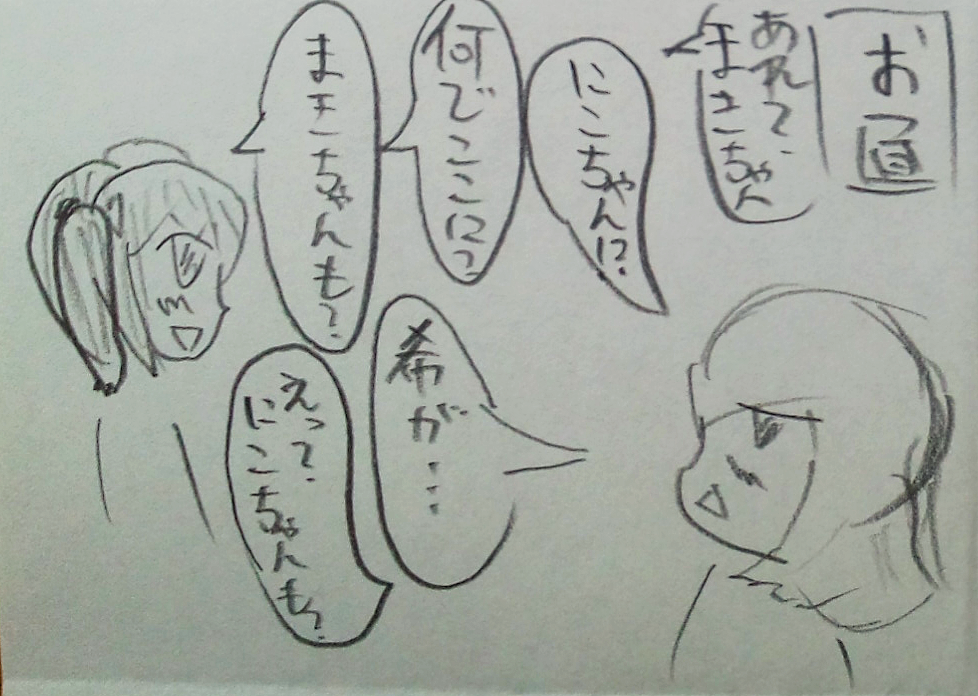 お昼
あれ?、
まきちゃん
にこちゃん!?
何でここに?
まきちゃんも?
希が…
えっ?、
にこちゃんも?